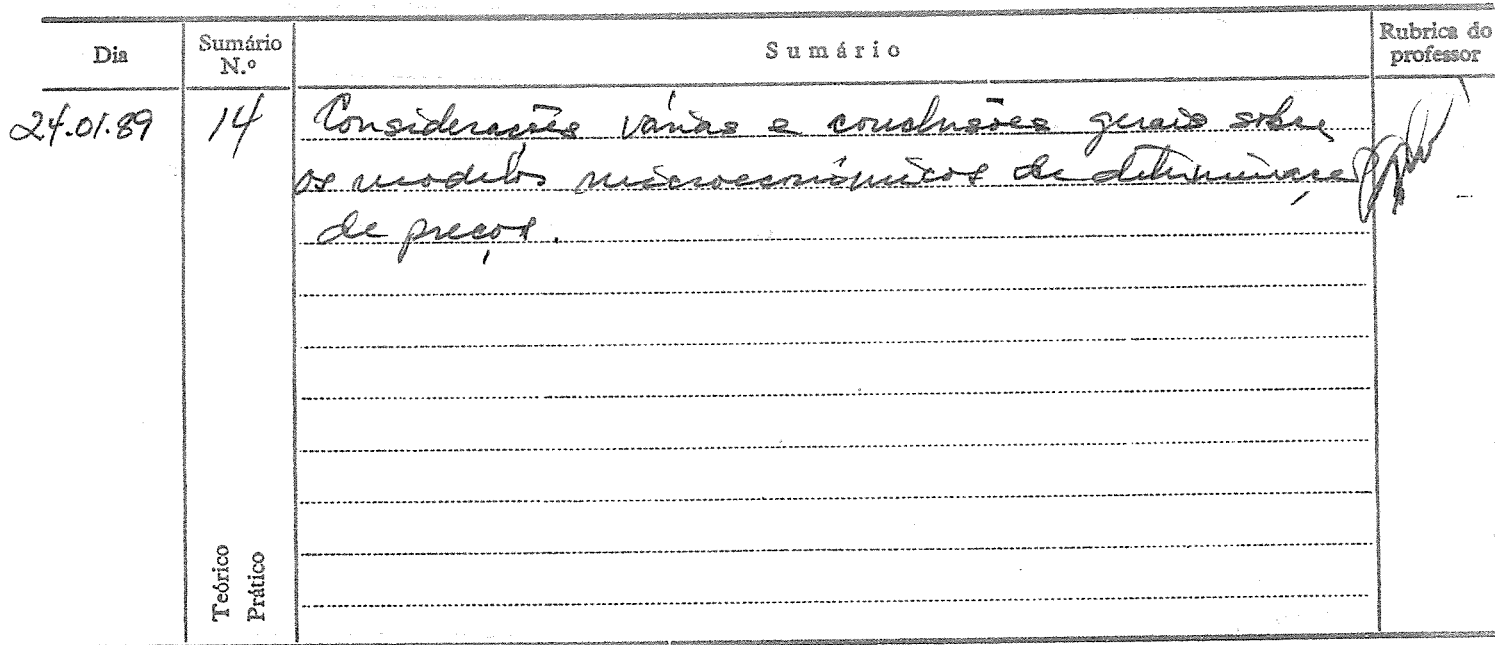 Dia
Sumário N.º
Sumário
Rubrica do professor
24.01.89
14
Considerações várias e conclusões gerais sobre
os modelos microeconómicos de determinação
de preços.
Teórico
Prático